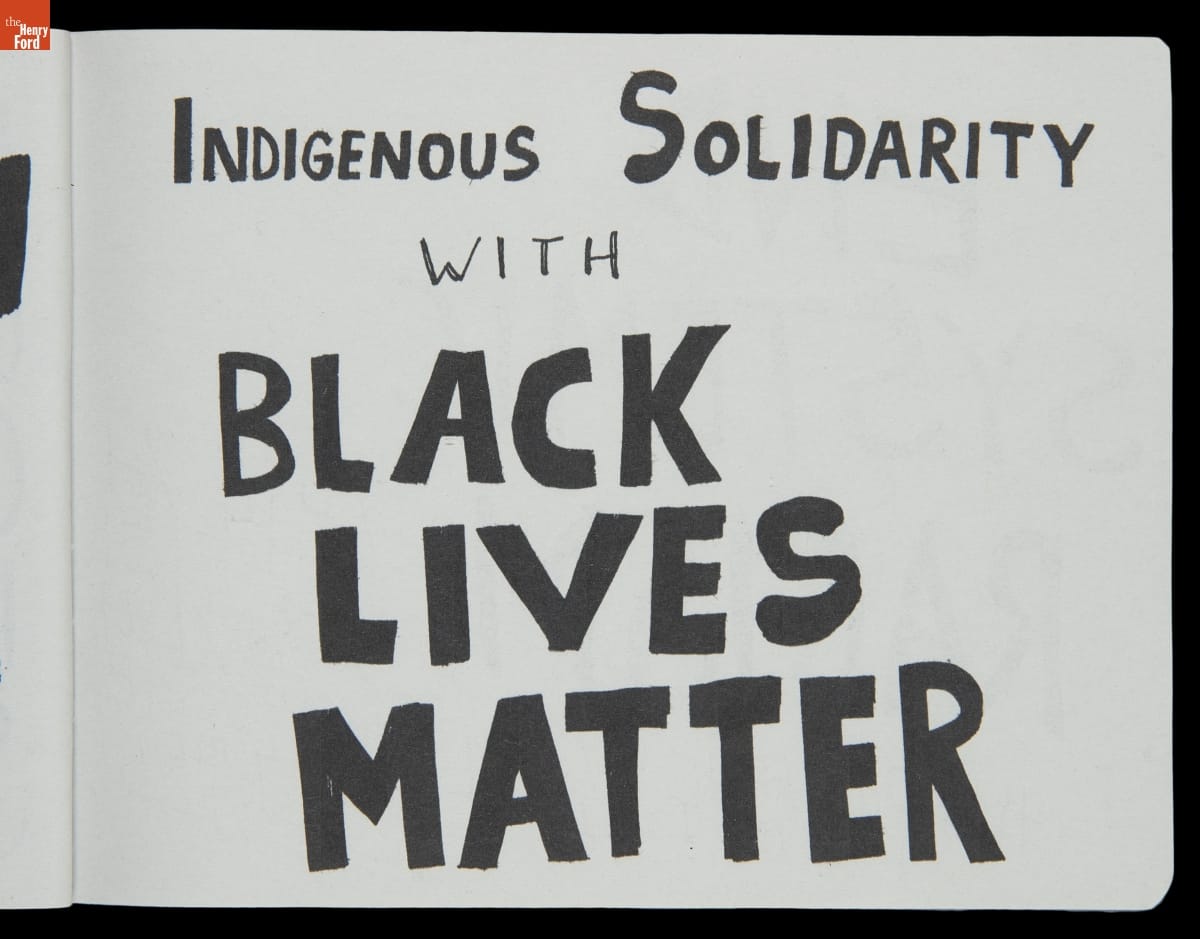 the
Henry
Ford
INDIGENOUS SOLIDARITY
WITH
BLACK
LIVES
MATTER